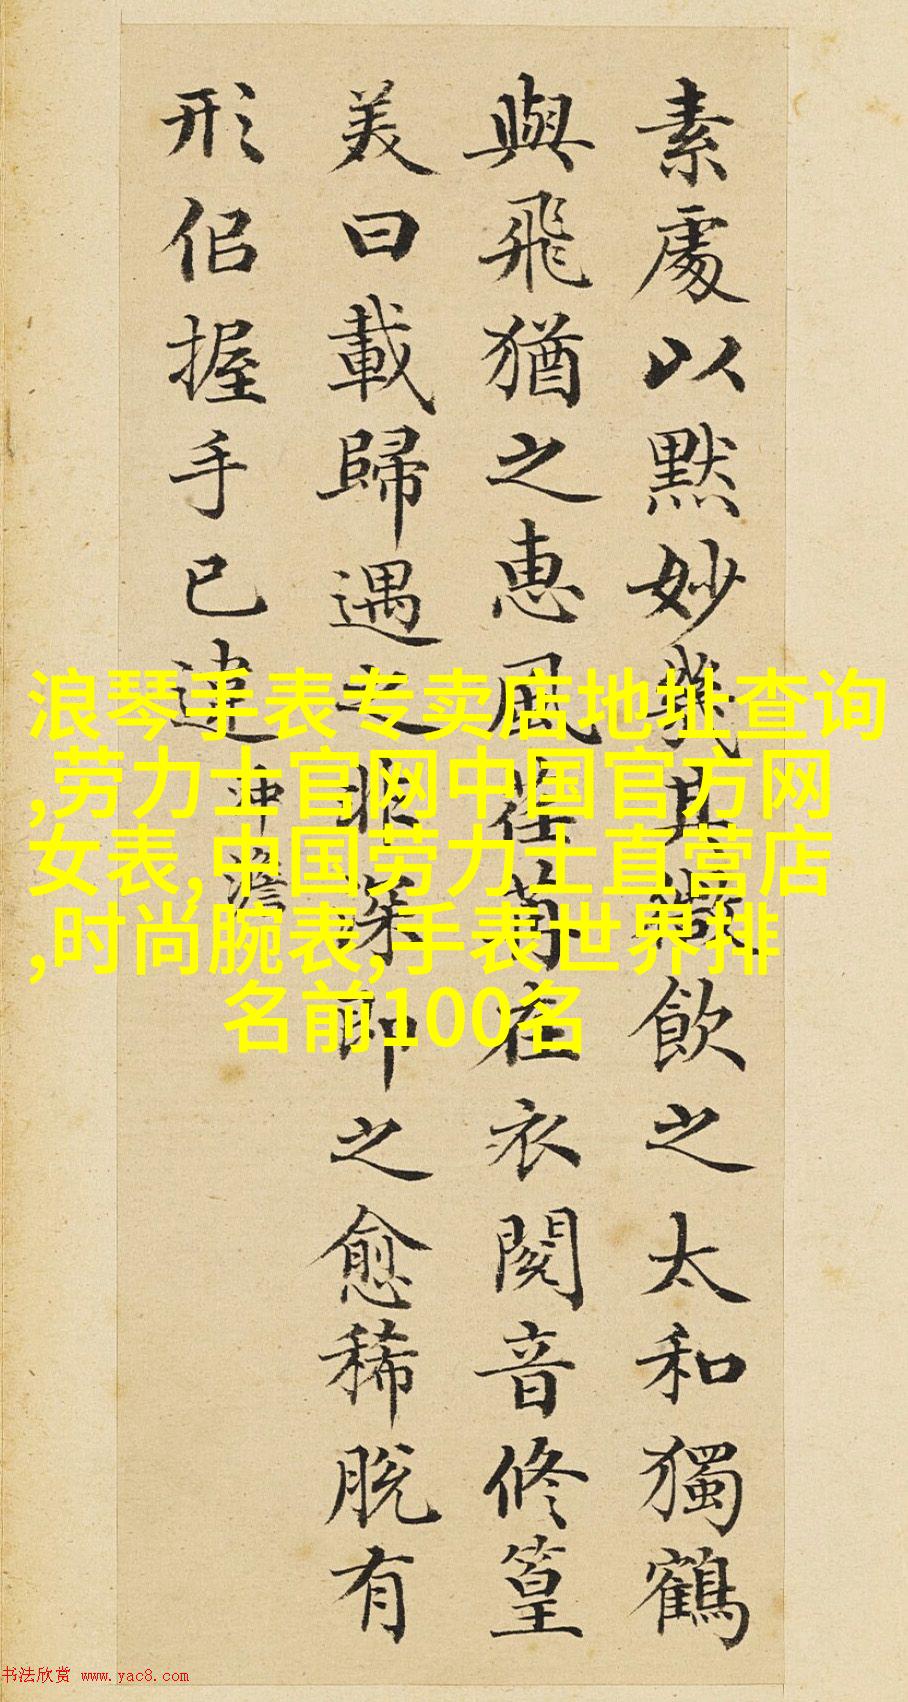 素處以默妙幾其微飲之太和獨鶴
與飛猶之惠風荏苒在衣閱音修篁
美曰載歸遇之非深即之愈稀脫有
形佀握手已違
沖澹
浪琴手表专卖店地址查询
,劳力士官网中国官方网
女表,中国劳力士直营店
,时尚腕表,手表世界排
名前100名
书法欣赏 www.yac8.com